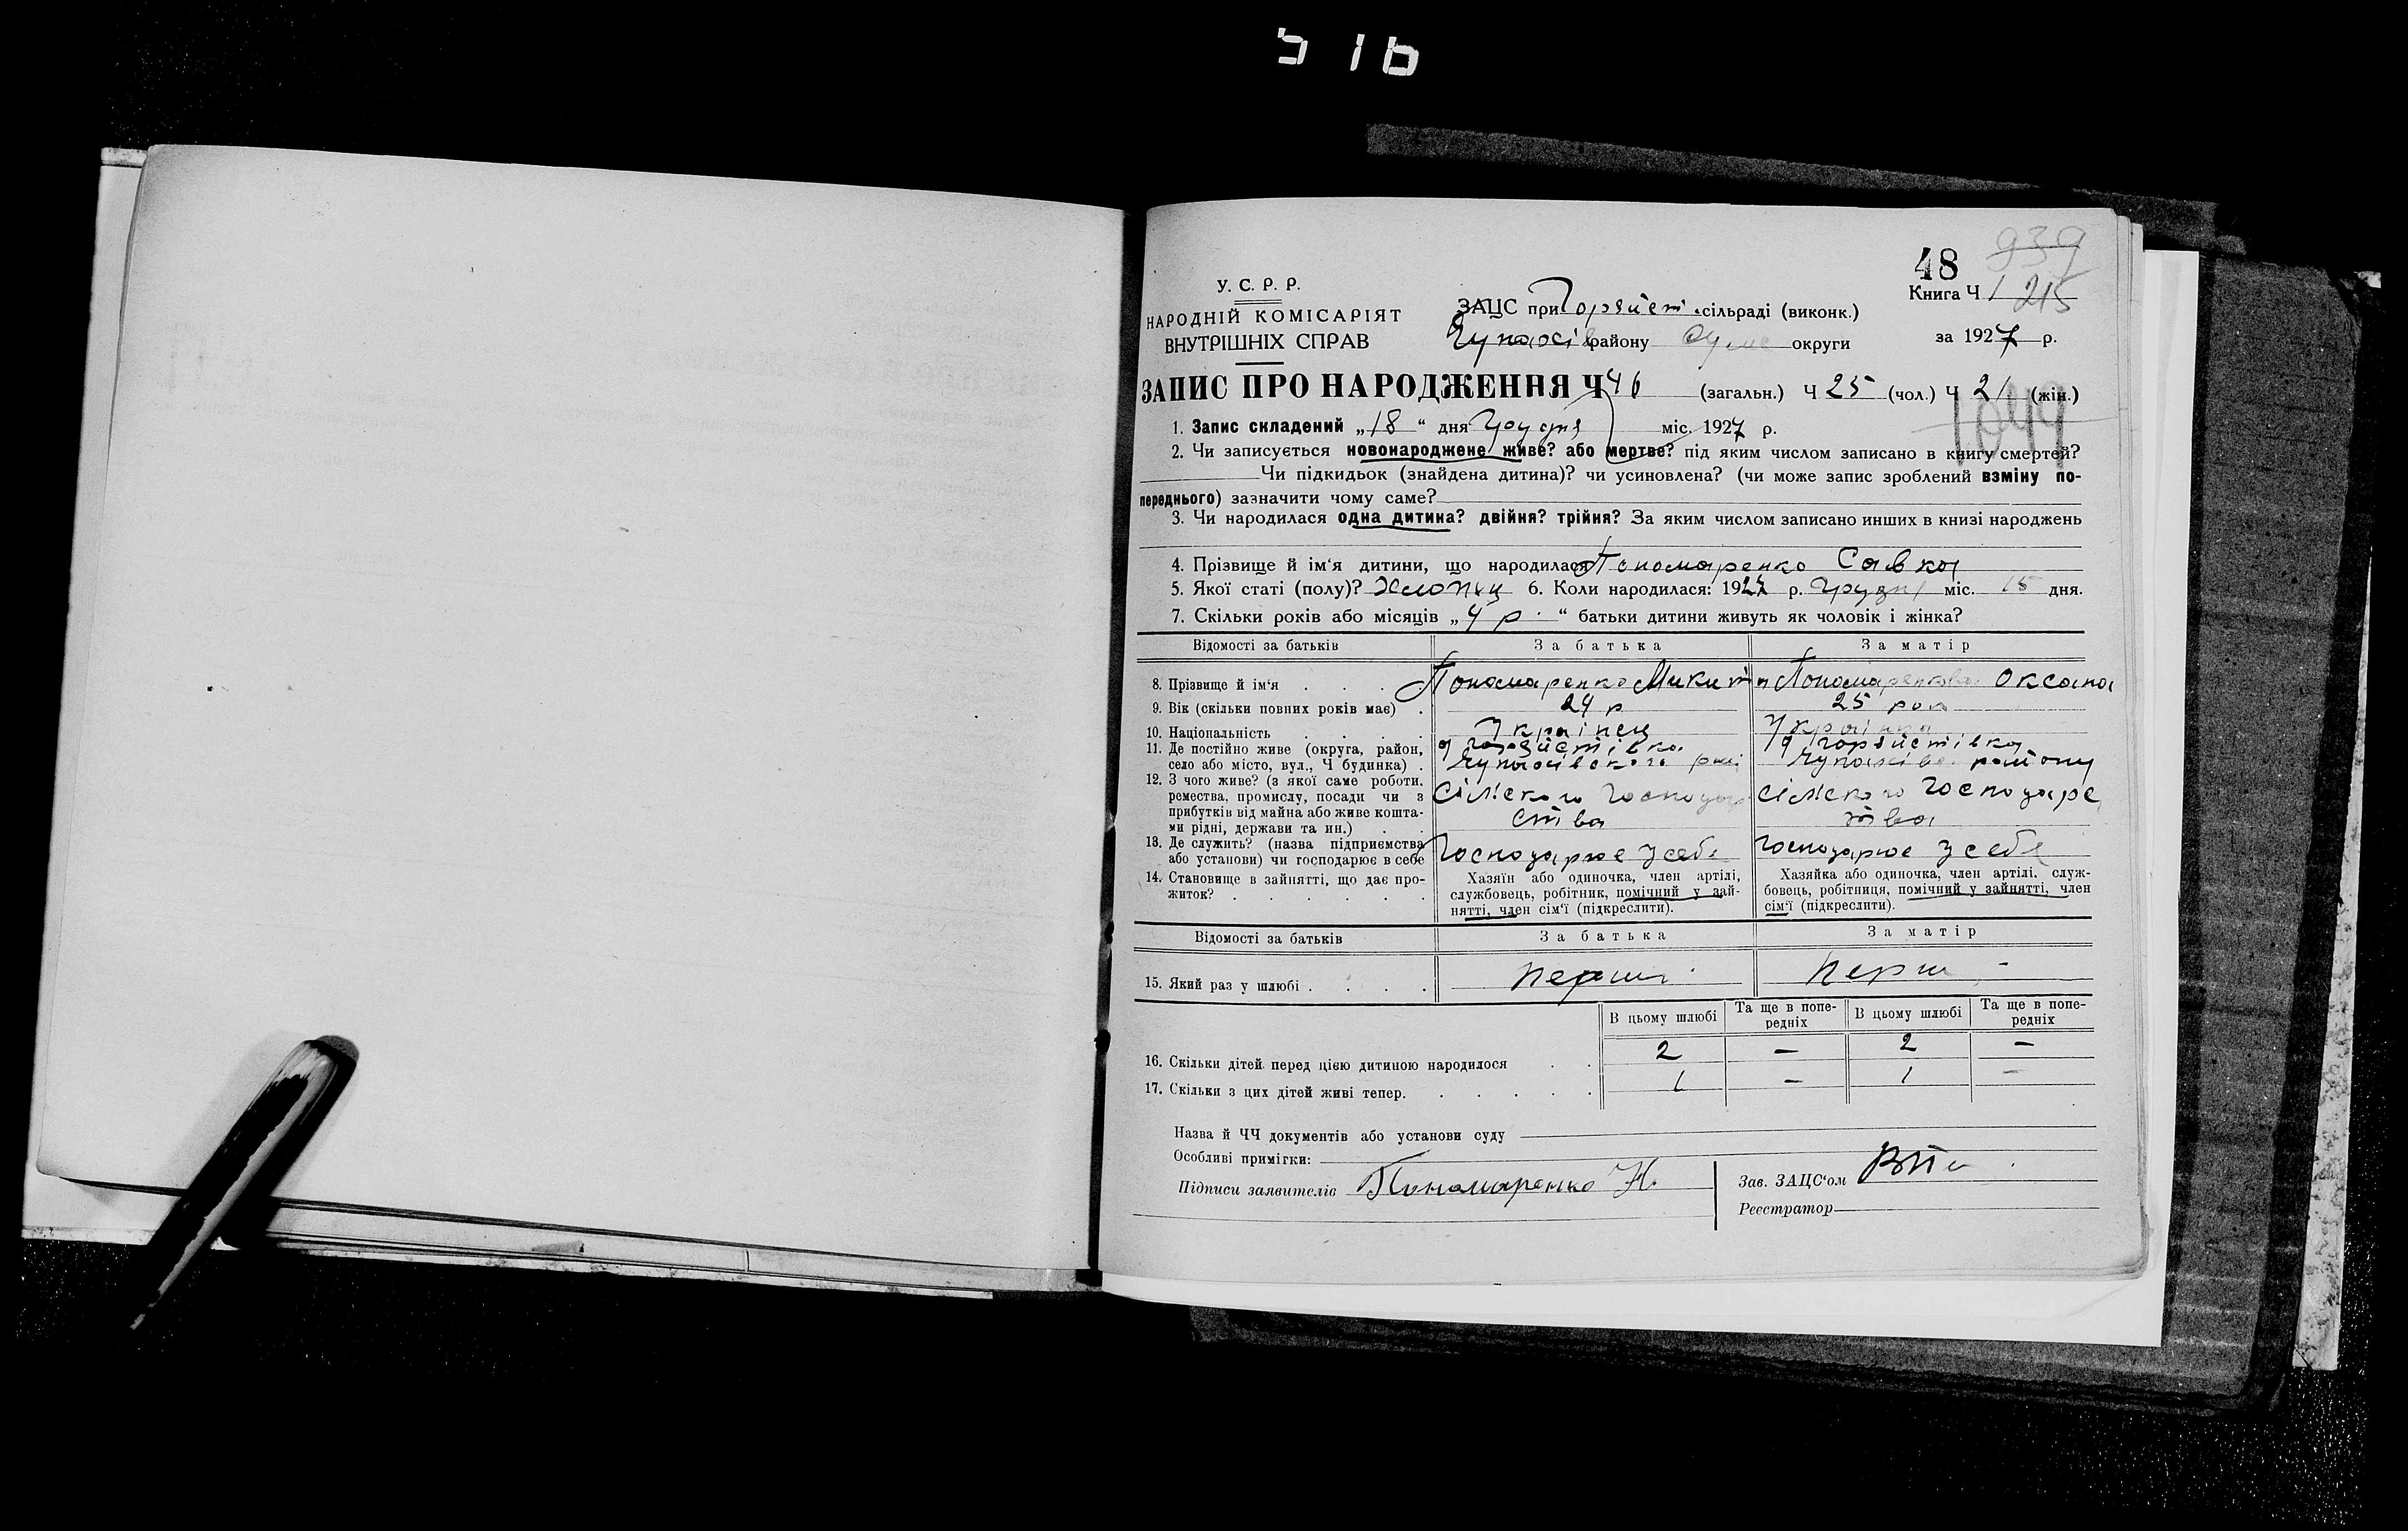 516
48
939
У. С. Р. Р.
НАРОДНІЙ КОМІСАРІЯТ
ВНУТРІШНІХ СПРАВ
ЗАЦС при Горяйст. сільраді (виконк.)
Чупахів району Сумс округи
Книга Ч 1 215
за 1927 р.
ЗАПИС ПРО НАРОДЖЕННЯ Ч 46 (загальн.) Ч 25 (чол.) Ч 21 (жін.)
1049
1. Запис складений „18“ дня Грудня міс. 1927 р.
2. Чи записується новонароджене живе? або мертве? під яким числом записано в книгу смертей?
Чи підкидьок (знайдена дитина)? чи усиновлена? (чи може запис зроблений взміну по-
переднього) зазначити чому саме?
3. Чи народилася одна дитина? двійня? трійня? За яким числом записано инших в книзі народжень
4. Прізвище й ім'я дитини, що народилася Пономаренко Савка
5. Якої статі (полу)? Хлопец 6. Коли народилася: 1927 р. Грудня міс. 15 дня.
7. Скільки років або місяців „4 р.“ батьки дитини живуть як чоловік і жінка?
Відомості за батьків За батька За матір
8. Прізвище й ім'я . . . Пономаренко Микита Пономаренкова Оксана
9. Вік (скільки повних років має) . 24 р 25 рок
10. Національність . . . . Українец Українка
11. Де постійно живе (округа, район, село або місто, вул., Ч будинка) . Горяйстівка Чупахівского рай Горяйстівка Чупахівс. району
12. З чого живе? (з якої саме роботи, ремества, промислу, посади чи з прибутків від майна або живе кошта-ми рідні, держави та ин.) . . Сілского Господарства сілского господарства
13. Де служить? (назва підприємства або установи) чи господарює в себе Господарює у себе Господарює у себе
14. Становище в зайнятті, що дає про-житок? . . . . . .
Хазяїн або одиночка, член артілі, службовець, робітник, помічний у зай-нятті, член сім'ї (підкреслити).
Хазяйка або одиночка, член артілі, служ-бовець, робітниця, помічний у зайнятті, член сім'ї (підкреслити).
Відомості за батьків За батька За матір
15. Який раз у шлюбі . . . . перший перш -
В цьому шлюбі Та ще в попе-редніх В цьому шлюбі Та ще в попе-редніх
16. Скільки дітей перед цією дитиною народилося . . 2 — 2 —
17. Скільки з цих дітей живі тепер. . . . . . 1 — 1 —
Назва й ЧЧ документів або установи суду
Особливі примітки:
Підписи заявителів Пономаренко Н.
Зав. ЗАЦС'ом
Реєстратор